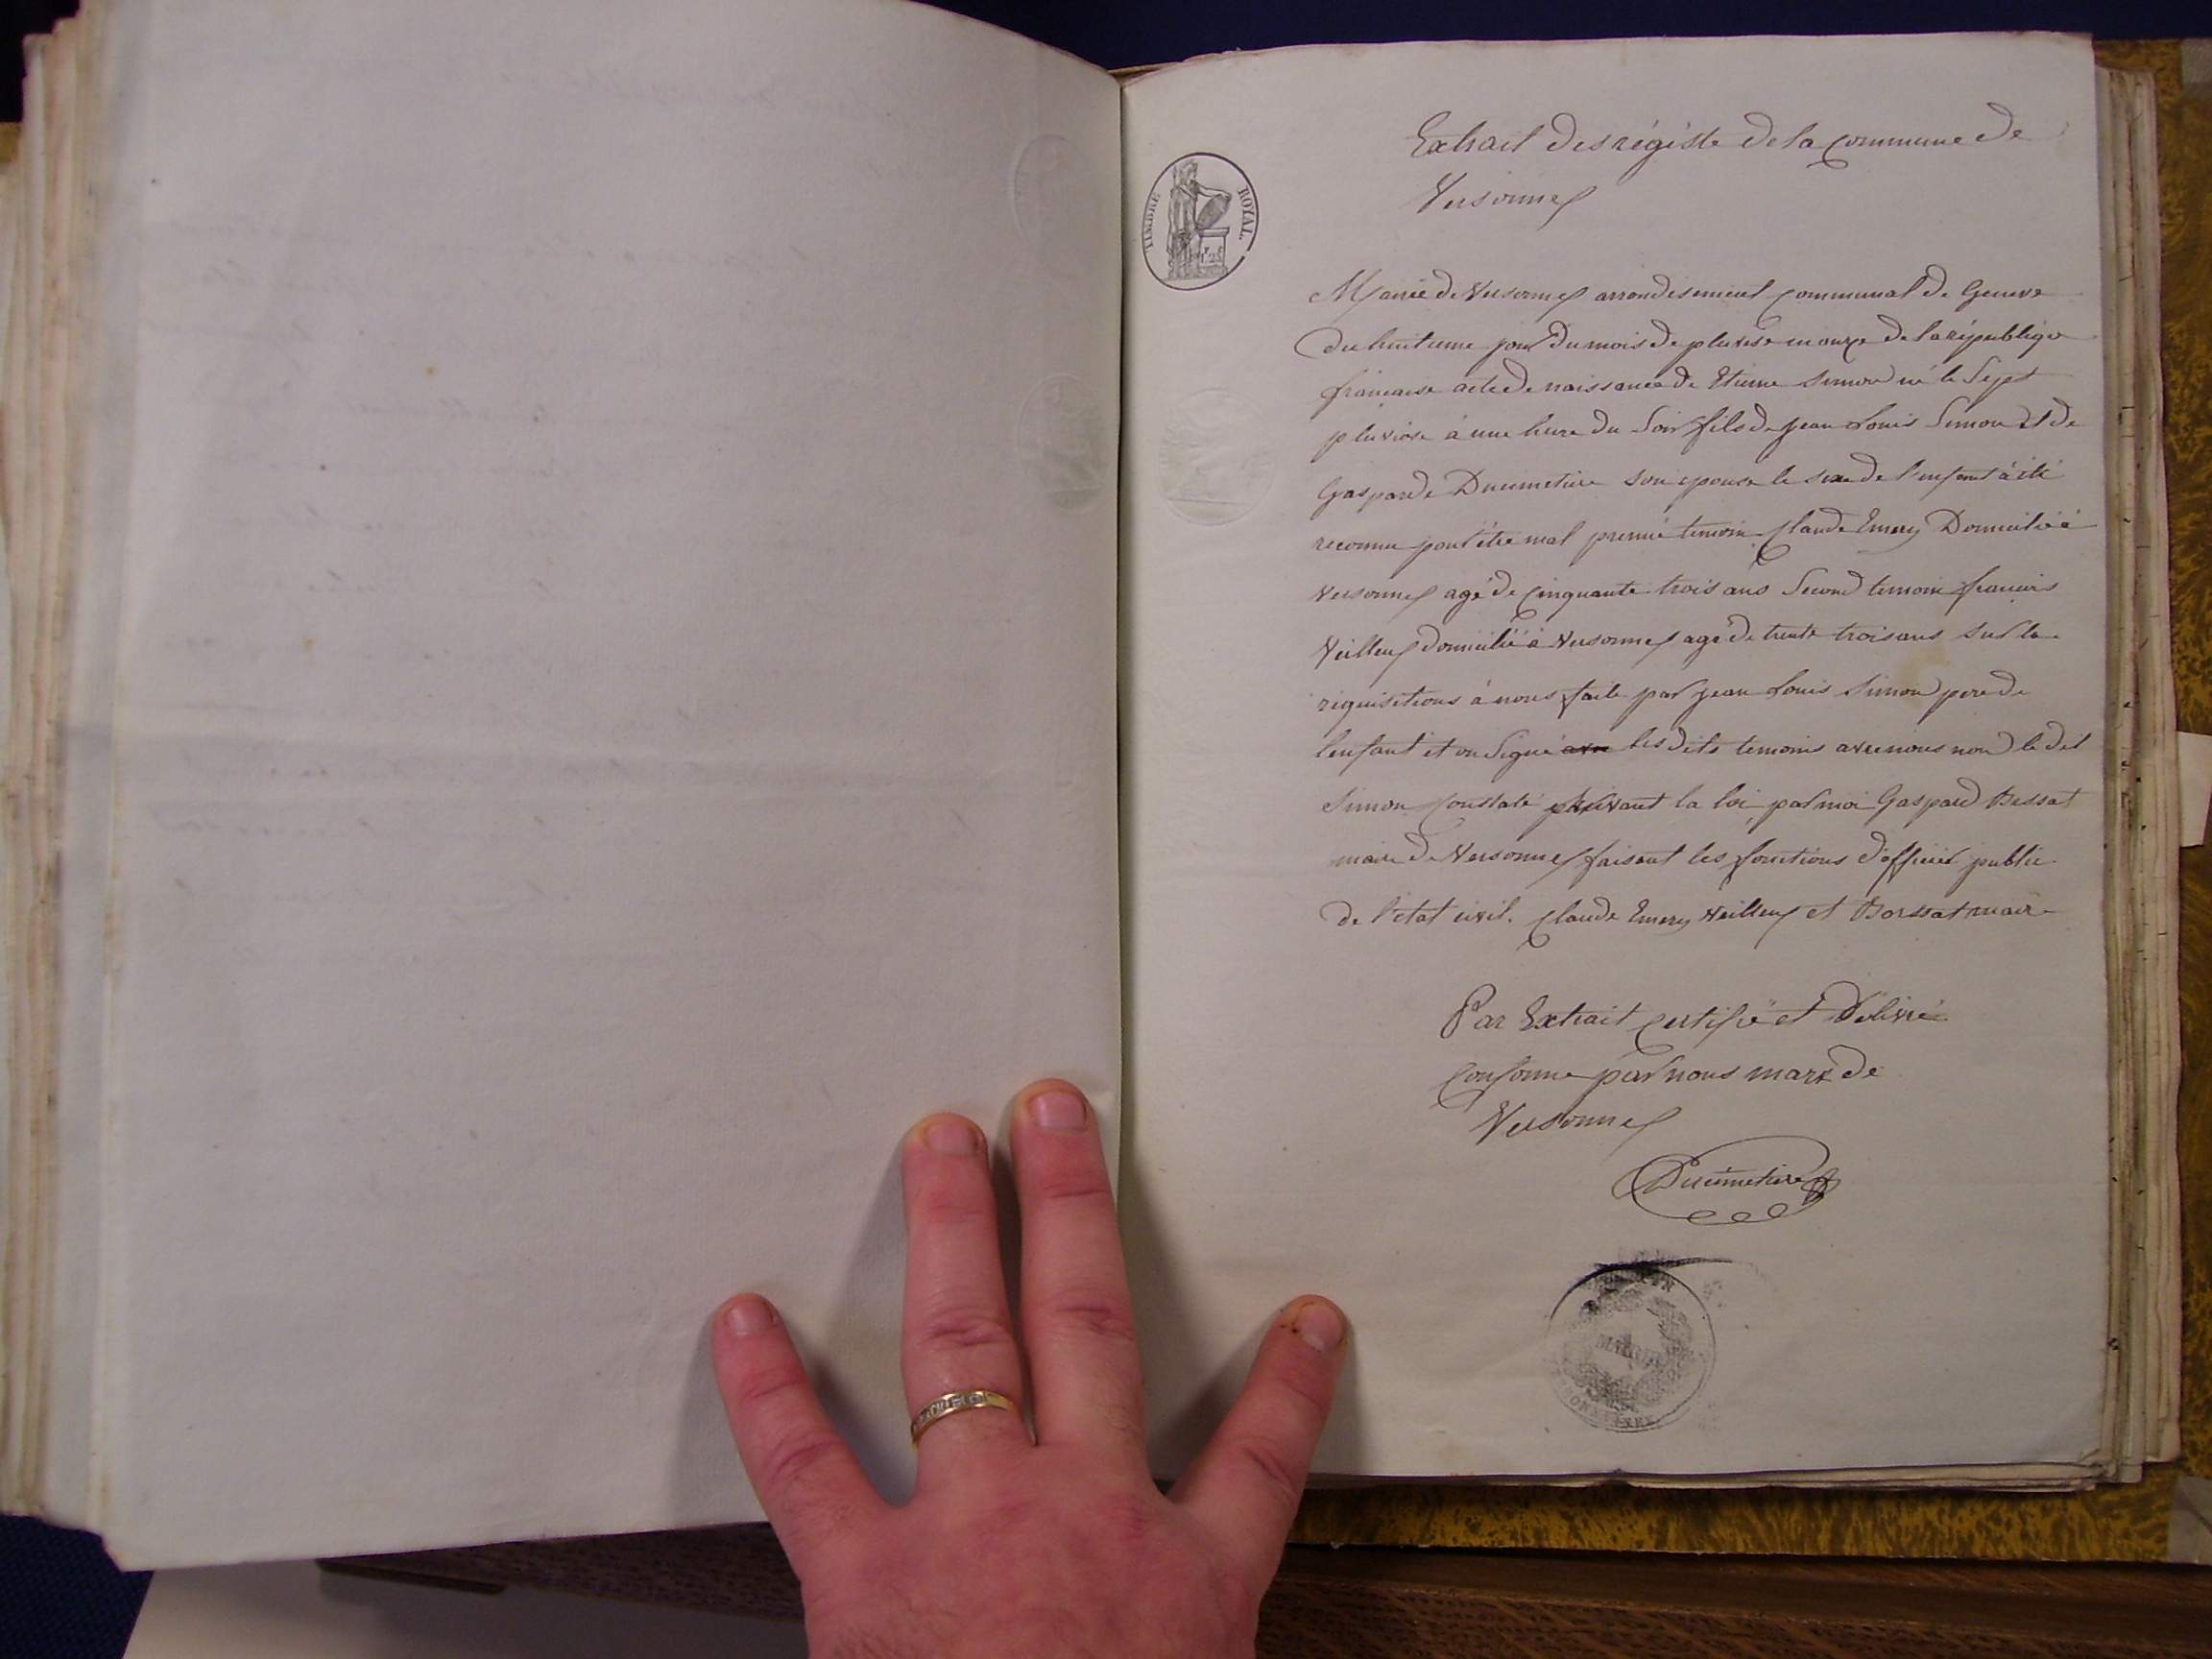 Extrait des régiste de la commune de
Versonnex
TIMBRE ROYAL.
Mairie de Versonnex arrondisement communal de Geneve
du huitieme jour du mois de pluviose en onze de la républiqe
francaise acte de naissance de Etiene Simon né le Sept
pluviose à une heure du Soir fils de jean Louis Simon et de
Gasparde Ducimetiere son epouse le sexe de l'enfant à été
reconnu pour être mal premié temoin Claude Emery Domicilié à
Versonnex agé de cinquante trois ans Second temoin francois
Veilleux domicilié à Versonnex agé de trente trois ans sur la
riquisitions à nous faite par jean Louis Simon pere de
l'enfant et on Signé avec les dits temoins avec nous non le dit
Simon Constaté suivant la loi par moi Gaspard Bessat
maire de Versonnex faisant les fonctions d'officier public
de l'etat civil. Claude Emery Veilleux et Borssat maire
Par Extrait certifié et Délivré
Conforme par nous maire de
Versonnex
Ducimetiere
MAIRIE